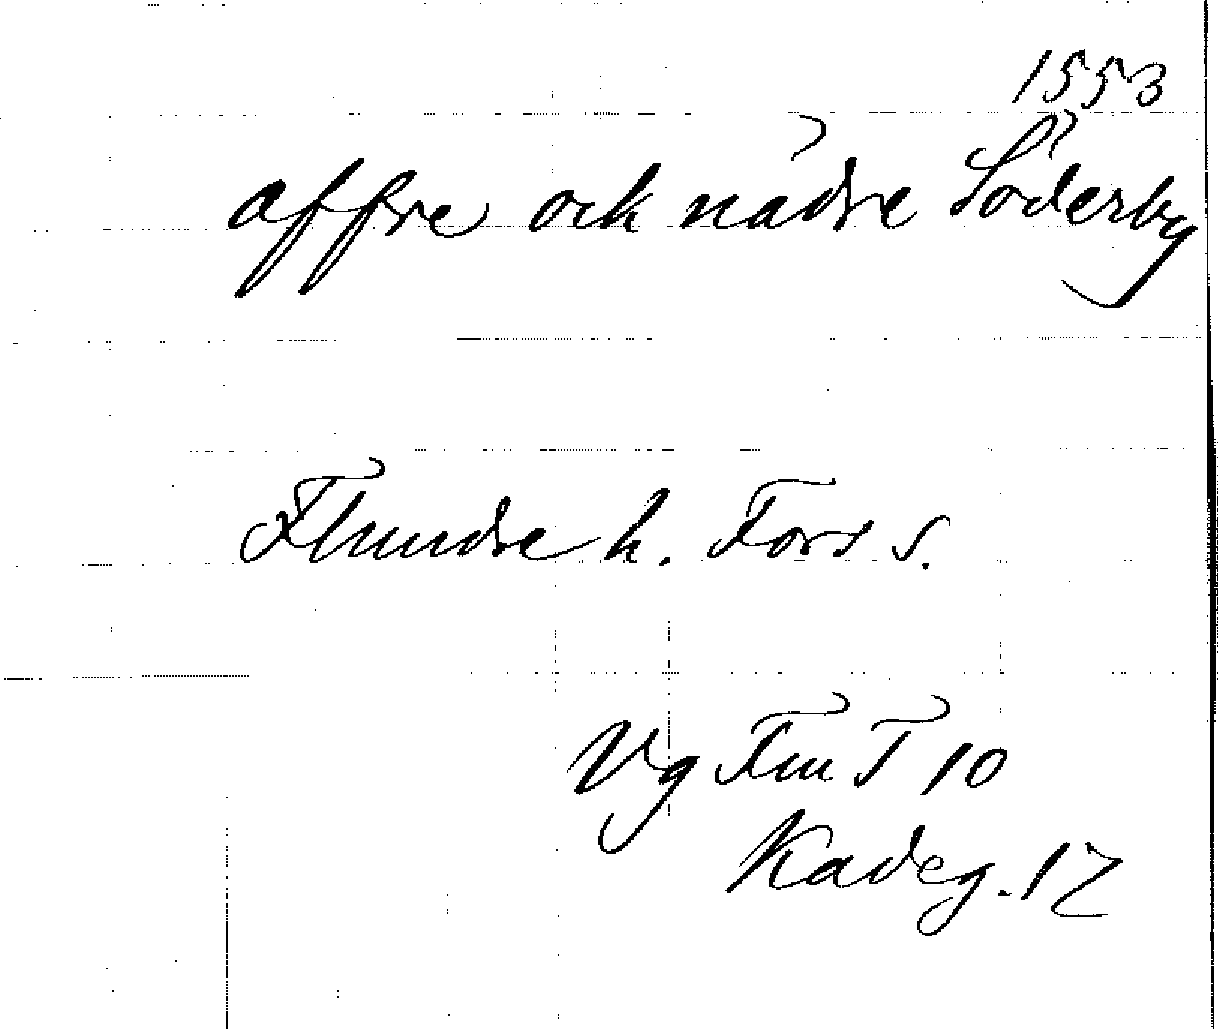 1553
affre och nädre Söderby
Flundre h. Fors s.
Vg Fm T 10
Kadeg. 12